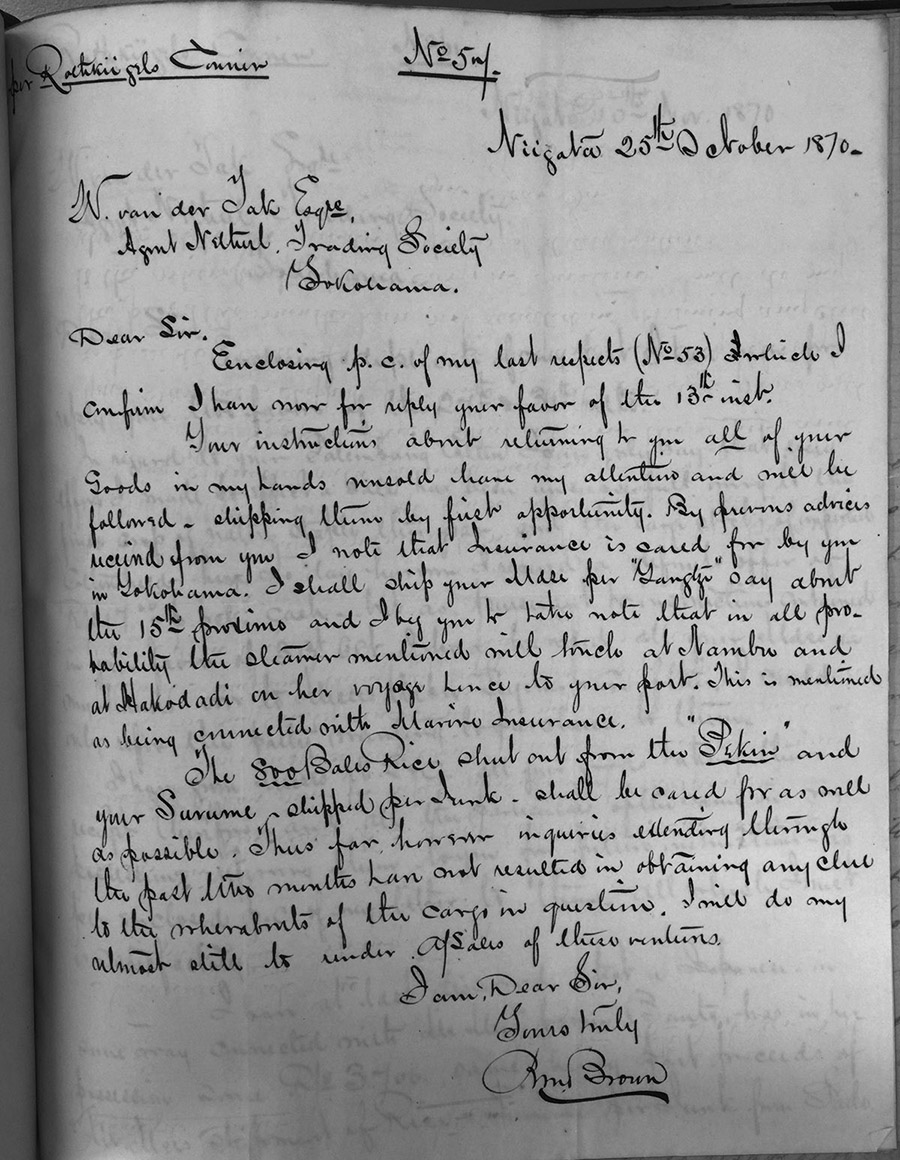 per Rothkügels Courier
No 54/.
Niigata 25th October 1870.
W. van der Tak Esqre,
Agent Netherl. Trading Society
Yokohama.
Dear Sir.
Enclosing p. c. of my last respects (No 53) which I
confirm I have now for reply your favor of the 13th inst.
Your instructions about returning to you all of your
Goods in my hands unsold have my attention and will be
followed - shipping them by first opportunity. By previous advices
received from you I note that Insurance is cared for by you
in Yokohama. I shall ship your Mdse per "Yangtze" say about
the 15th proximo and I beg you to take note that in all pro-
bability the steamer mentioned will touch at Nambu and
at Hakodadi on her voyage hence to your port. This is mentioned
as being connected with Marine Insurance.
The 800 Bales Rice shut out from the "Pekin" and
your Surume, shipped per Junk - shall be cared for as well
as possible. Thus far, however inquiries extending through
the past two months have not resulted in obtaining any clue
to the wherabouts of the cargo in question. I will do my
utmost still to render A/Sales of these ventures.
I am, Dear Sir,
Yours truly
Brown